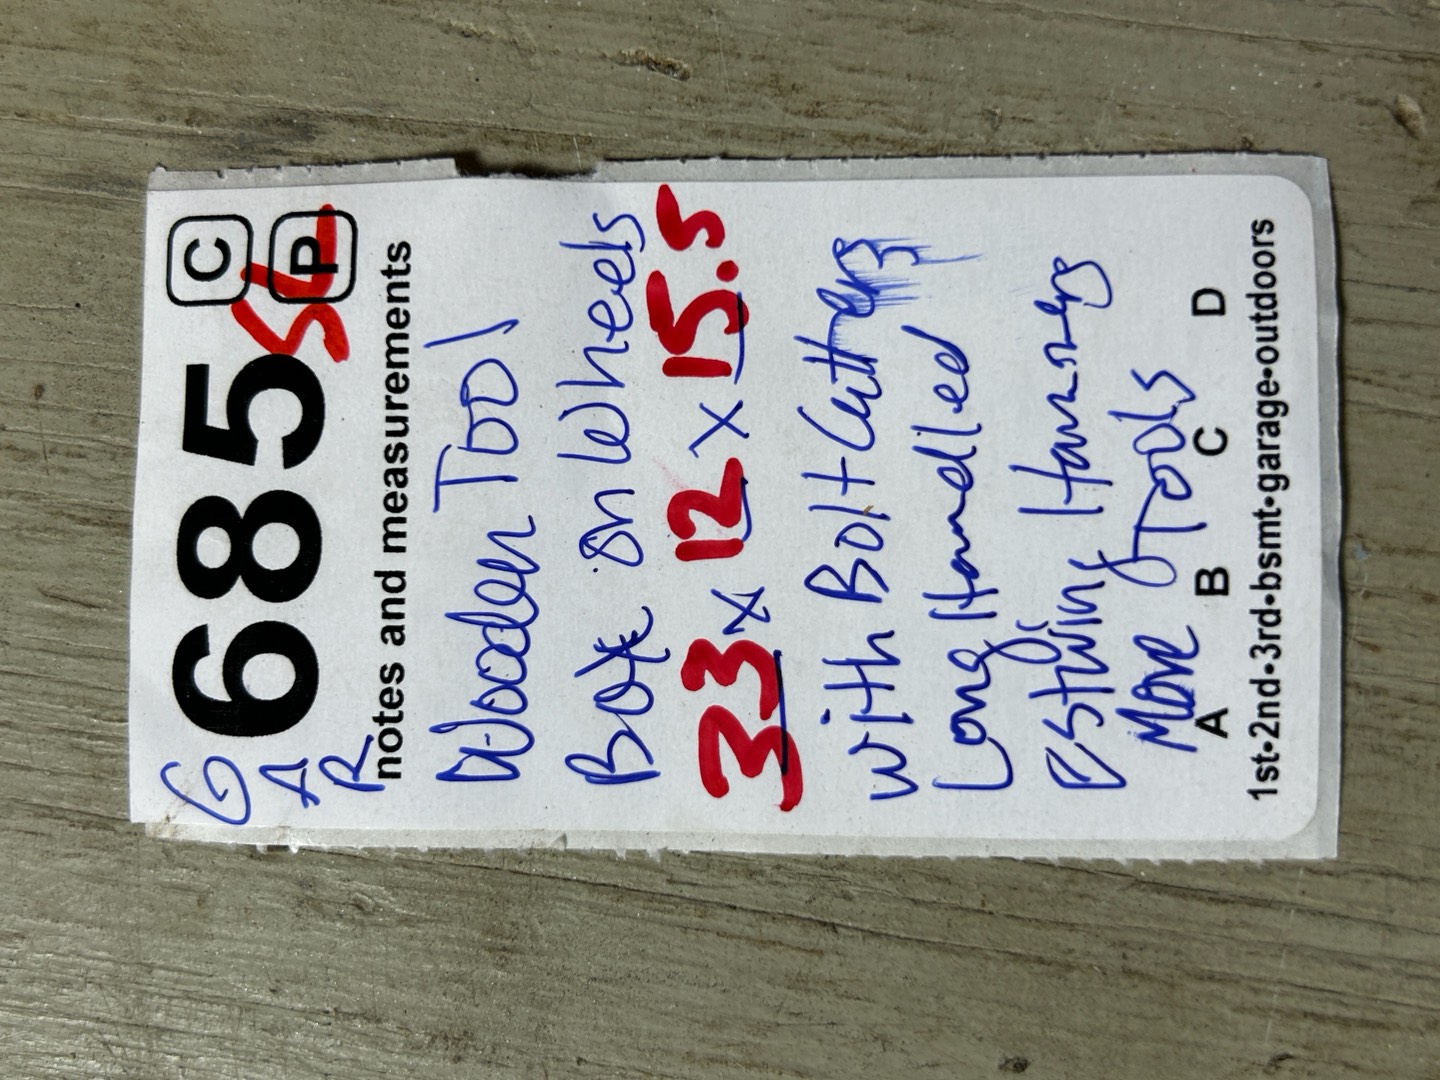 G
A
R
685
C
P
SL
notes and measurements
Wooden Tool
Box on Wheels
33 x 12 x 15.5
with Bolt Cutters
Long Handled
Estwing Hammers
More Tools
A B C D
1st•2nd•3rd•bsmt•garage•outdoors